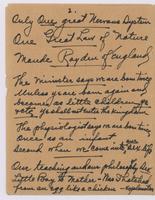 2.
Only One great Nervous System
One Great Law of Nature
Maude Royden of England
The Minister says we are born twice
Unless ye are born again and
become as little children, ye
shall not enter the kingdom
The physiologist says we are born twice
once as an
second when we come into
One teaching
Little Boy to Mother - Was I hatched
from an egg like a chicken -